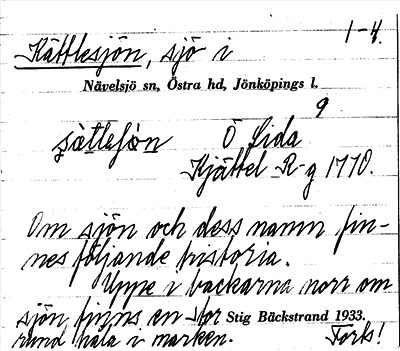 1-4.
Kättlesjön, sjö i
Nävelsjö sn, Östra hd, Jönköpings l.
9
Ö Lida
Kjättel R-g 1770.
Om sjön och dess namn fin-
nes följande historia.
Uppe i backarna norr om
sjön finns en stor
Stig Bäckstrand 1933.
rund håla i marken. Forts!